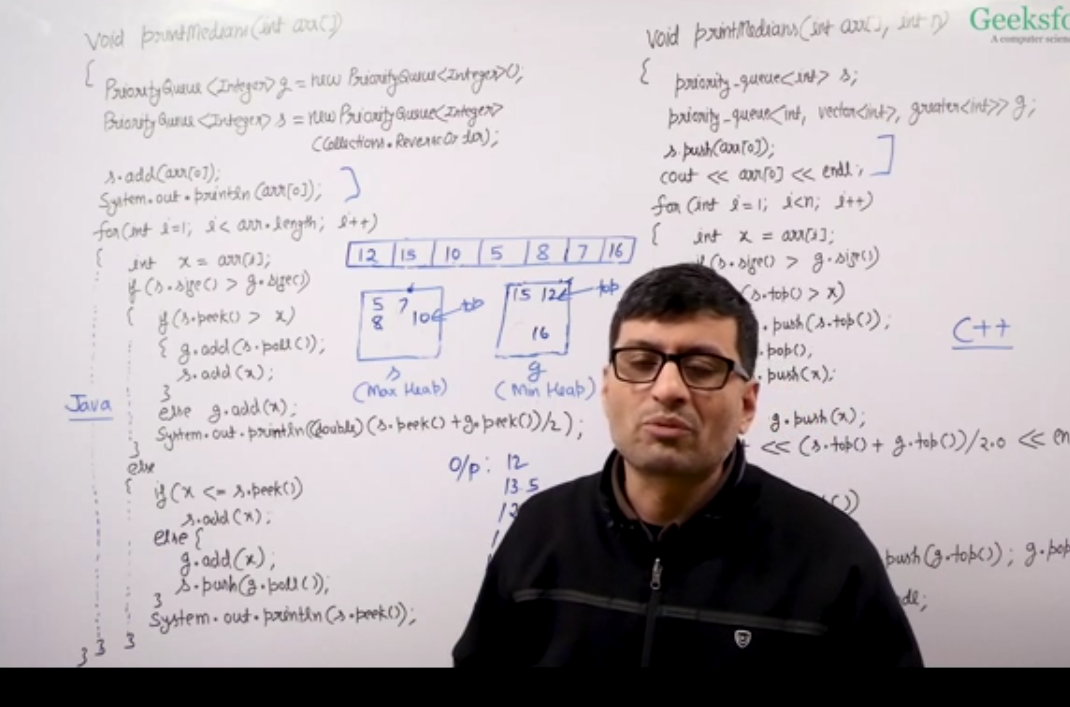 void printMedians(int arr[])
{
PriorityQueue<Integer> g = new PriorityQueue<Integer>();
PriorityQueue<Integer> s = new PriorityQueue<Integer>
(Collections.ReverseOrder);
s.add(arr[0]);
System.out.println(arr[0]);
for(int i=1; i< arr.length; i++)
{ int x = arr[i];
if (s.size() > g.size())
{ if (s.peek() > x)
{ g.add(s.poll());
s.add(x);
}
else g.add(x);
System.out.println((double)(s.peek()+g.peek())/2);
}
else
{ if (x <= s.peek())
s.add(x);
else {
g.add(x);
s.push(g.poll());
}
System.out.println(s.peek());
} } }
Java
12 15 10 5 8 7 16
5 7
8 10 top
s
(Max Heap)
15 12 top
16
g
(Min Heap)
O/p: 12
13.5
12
void printMedians(int arr[], int n)
{ priority_queue<int> s;
priority_queue<int, vector<int>, greater<int>> g;
s.push(arr[0]);
cout << arr[0] << endl;
for (int i=1; i<n; i++)
{ int x = arr[i];
if (s.size() > g.size())
(s.top() > x)
.push(s.top());
.pop();
.push(x);
g.push(x);
<< (s.top() + g.top())/2.0 <<
push(g.top()); g.pop
C++
Geeksfo
A computer scien